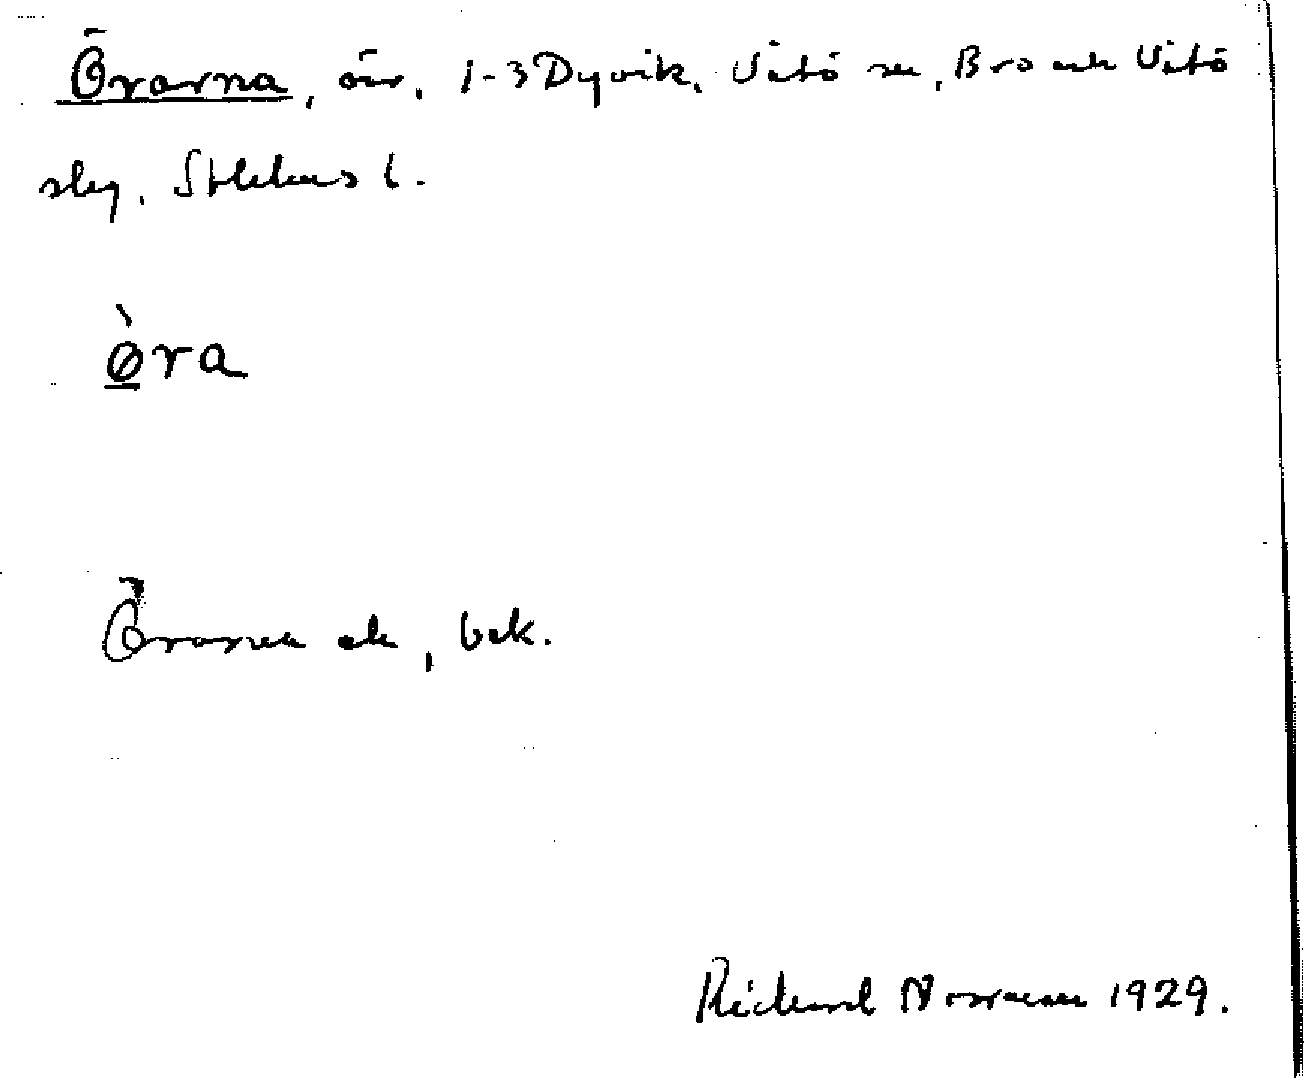 Örarna, öar. 1-3 Dyvik, Vätö sn, Bro och Vätö
slg, Sthlms l.
òra
Örarna ek, bek.
Rickard Norrman 1929.